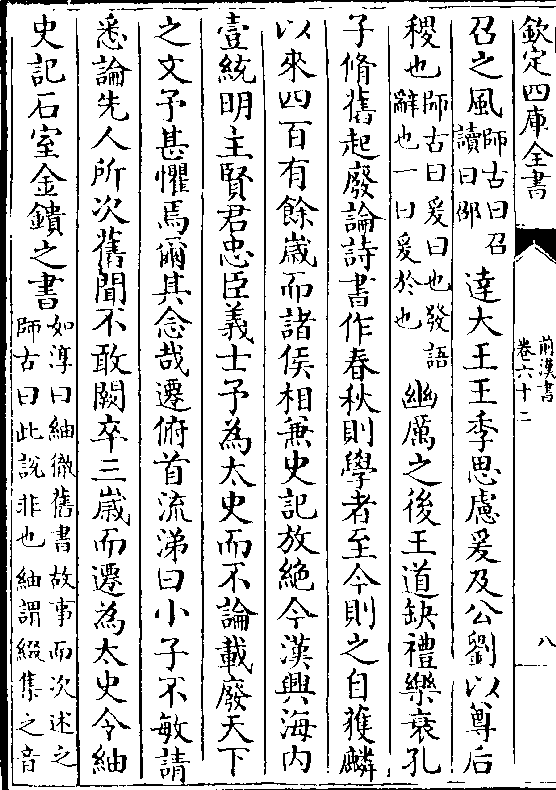 欽定四庫全書
前漢書
卷六十二
八
召之風師古曰召
讀曰邵達大王王季思慮爰及公劉以尊后
稷也師古曰爰曰也發語
辭也一曰爰於也幽厲之後王道缺禮樂衰孔
子脩舊起廢論詩書作春秋則學者至今則之自獲麟
以來四百有餘嵗而諸侯相兼史記放絶今漢興海内
壹統明主賢君忠臣義士予為太史而不論載廢天下
之文予甚懼焉爾其念哉遷俯首流涕曰小子不敏請
悉論先人所次舊聞不敢闕卒三嵗而遷為太史令紬
史記石室金鐀之書如淳曰紬徹舊書故事而次述之
師古曰此說非也紬謂綴集之音